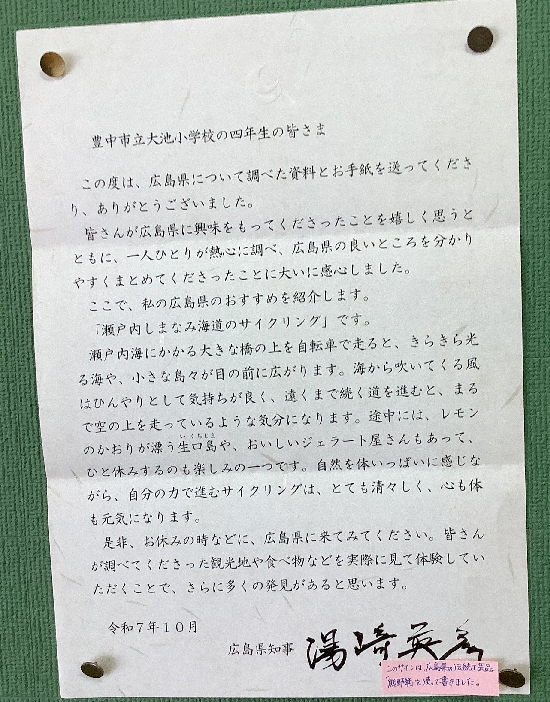 豊中市立大池小学校の四年生の皆さま
この度は、広島県について調べた資料とお手紙を送ってくださ
り、ありがとうございました。
皆さんが広島県に興味をもってくださったことを嬉しく思うと
ともに、一人ひとりが熱心に調べ、広島県の良いところを分かり
やすくまとめてくださったことに大いに感心しました。
ここで、私の広島県のおすすめを紹介します。
「瀬戸内しまなみ海道のサイクリング」です。
瀬戸内海にかかる大きな橋の上を自転車で走ると、きらきら光
る海や、小さな島々が目の前に広がります。海から吹いてくる風
はひんやりとして気持ちが良く、遠くまで続く道を進むと、まる
で空の上を走っているような気分になります。途中には、レモン
いくちじま
のかおりが漂う生口島や、おいしいジェラート屋さんもあって、
ひと休みするのも楽しみの一つです。自然を体いっぱいに感じな
がら、自分の力で進むサイクリングは、とても清々しく、心も体
も元気になります。
是非、お休みの時などに、広島県に来てみてください。皆さん
が調べてくださった観光地や食べ物などを実際に見て体験してい
ただくことで、さらに多くの発見があると思います。
令和7年10月
広島県知事 湯﨑英彦
このサインは、広島県の伝統工芸品
熊野筆を使って書きました。